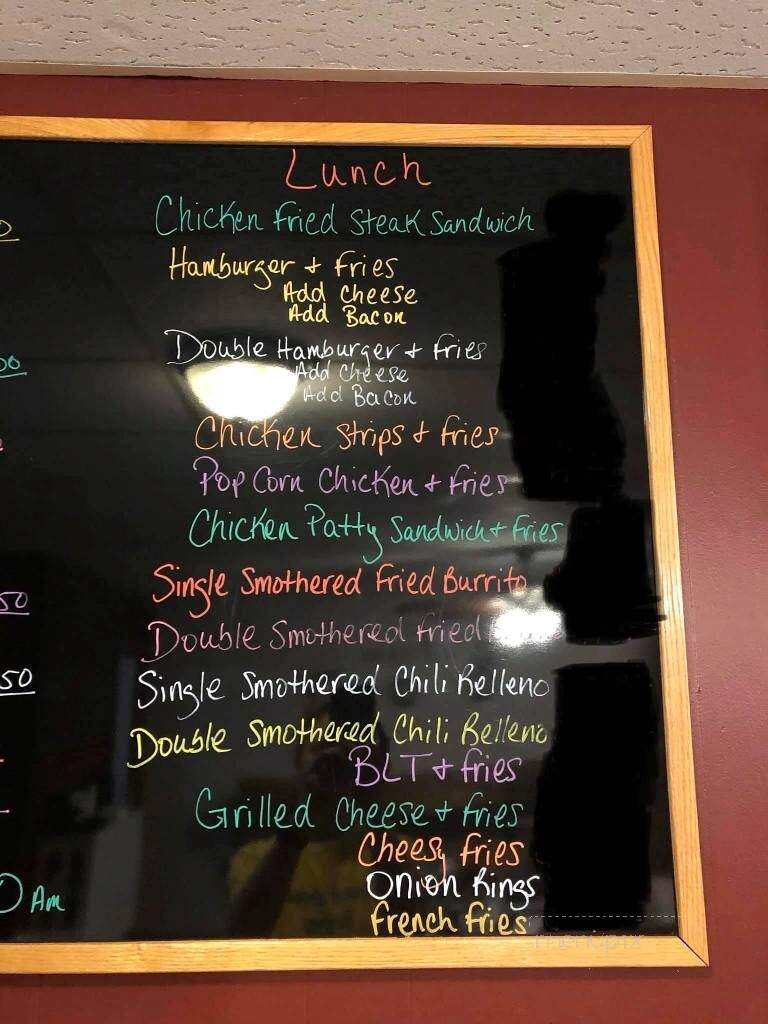 Lunch
Chicken Fried Steak Sandwich
Hamburger + Fries
Add Cheese
Add Bacon
Double Hamburger + Fries
Add Cheese
Add Bacon
Chicken Strips + Fries
Pop Corn Chicken + Fries
Chicken Patty Sandwich + Fries
Single Smothered Fried Burrito
50
Double Smothered Fried
Single Smothered Chili Relleno
50
Double Smothered Chili Relleno
BLT + Fries
Grilled Cheese + Fries
Cheesy Fries
Onion Rings
Am
French Fries
menupix